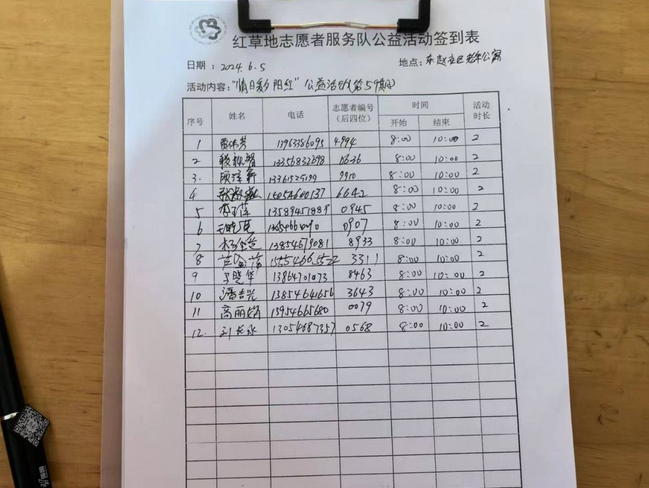 红草地志愿者服务队公益活动签到表
日期：2024.6.5 地点：东赵社区老年公寓
活动内容："情日彩阳红"公益活动(第59期)
序号 姓名 电话 志愿者编号（后四位） 时间 开始 结束 活动时长
1 芳 13963386095 4994 8:00 10:00 2
2 13356832698 0636 8:00 10:00 2
3. 9910 8:00 10:00 2
4 6642 8:00 10:00 2
5 13589451889 0945 8:00 10:00 2
6 0907 8:00 10:00 2
7 杨 13854679081 8933 8:00 10:00 2
8 3311 8:00 10:00 2
9 华 13864701073 8463 8:00 10:00 2
10 潘 兴 13854641656 3643 8:00 10:00 2
11 高丽娟 13954665680 0079 8:00 10:00 2
12. 刘长永 13054687357 0568 8:00 10:00 2